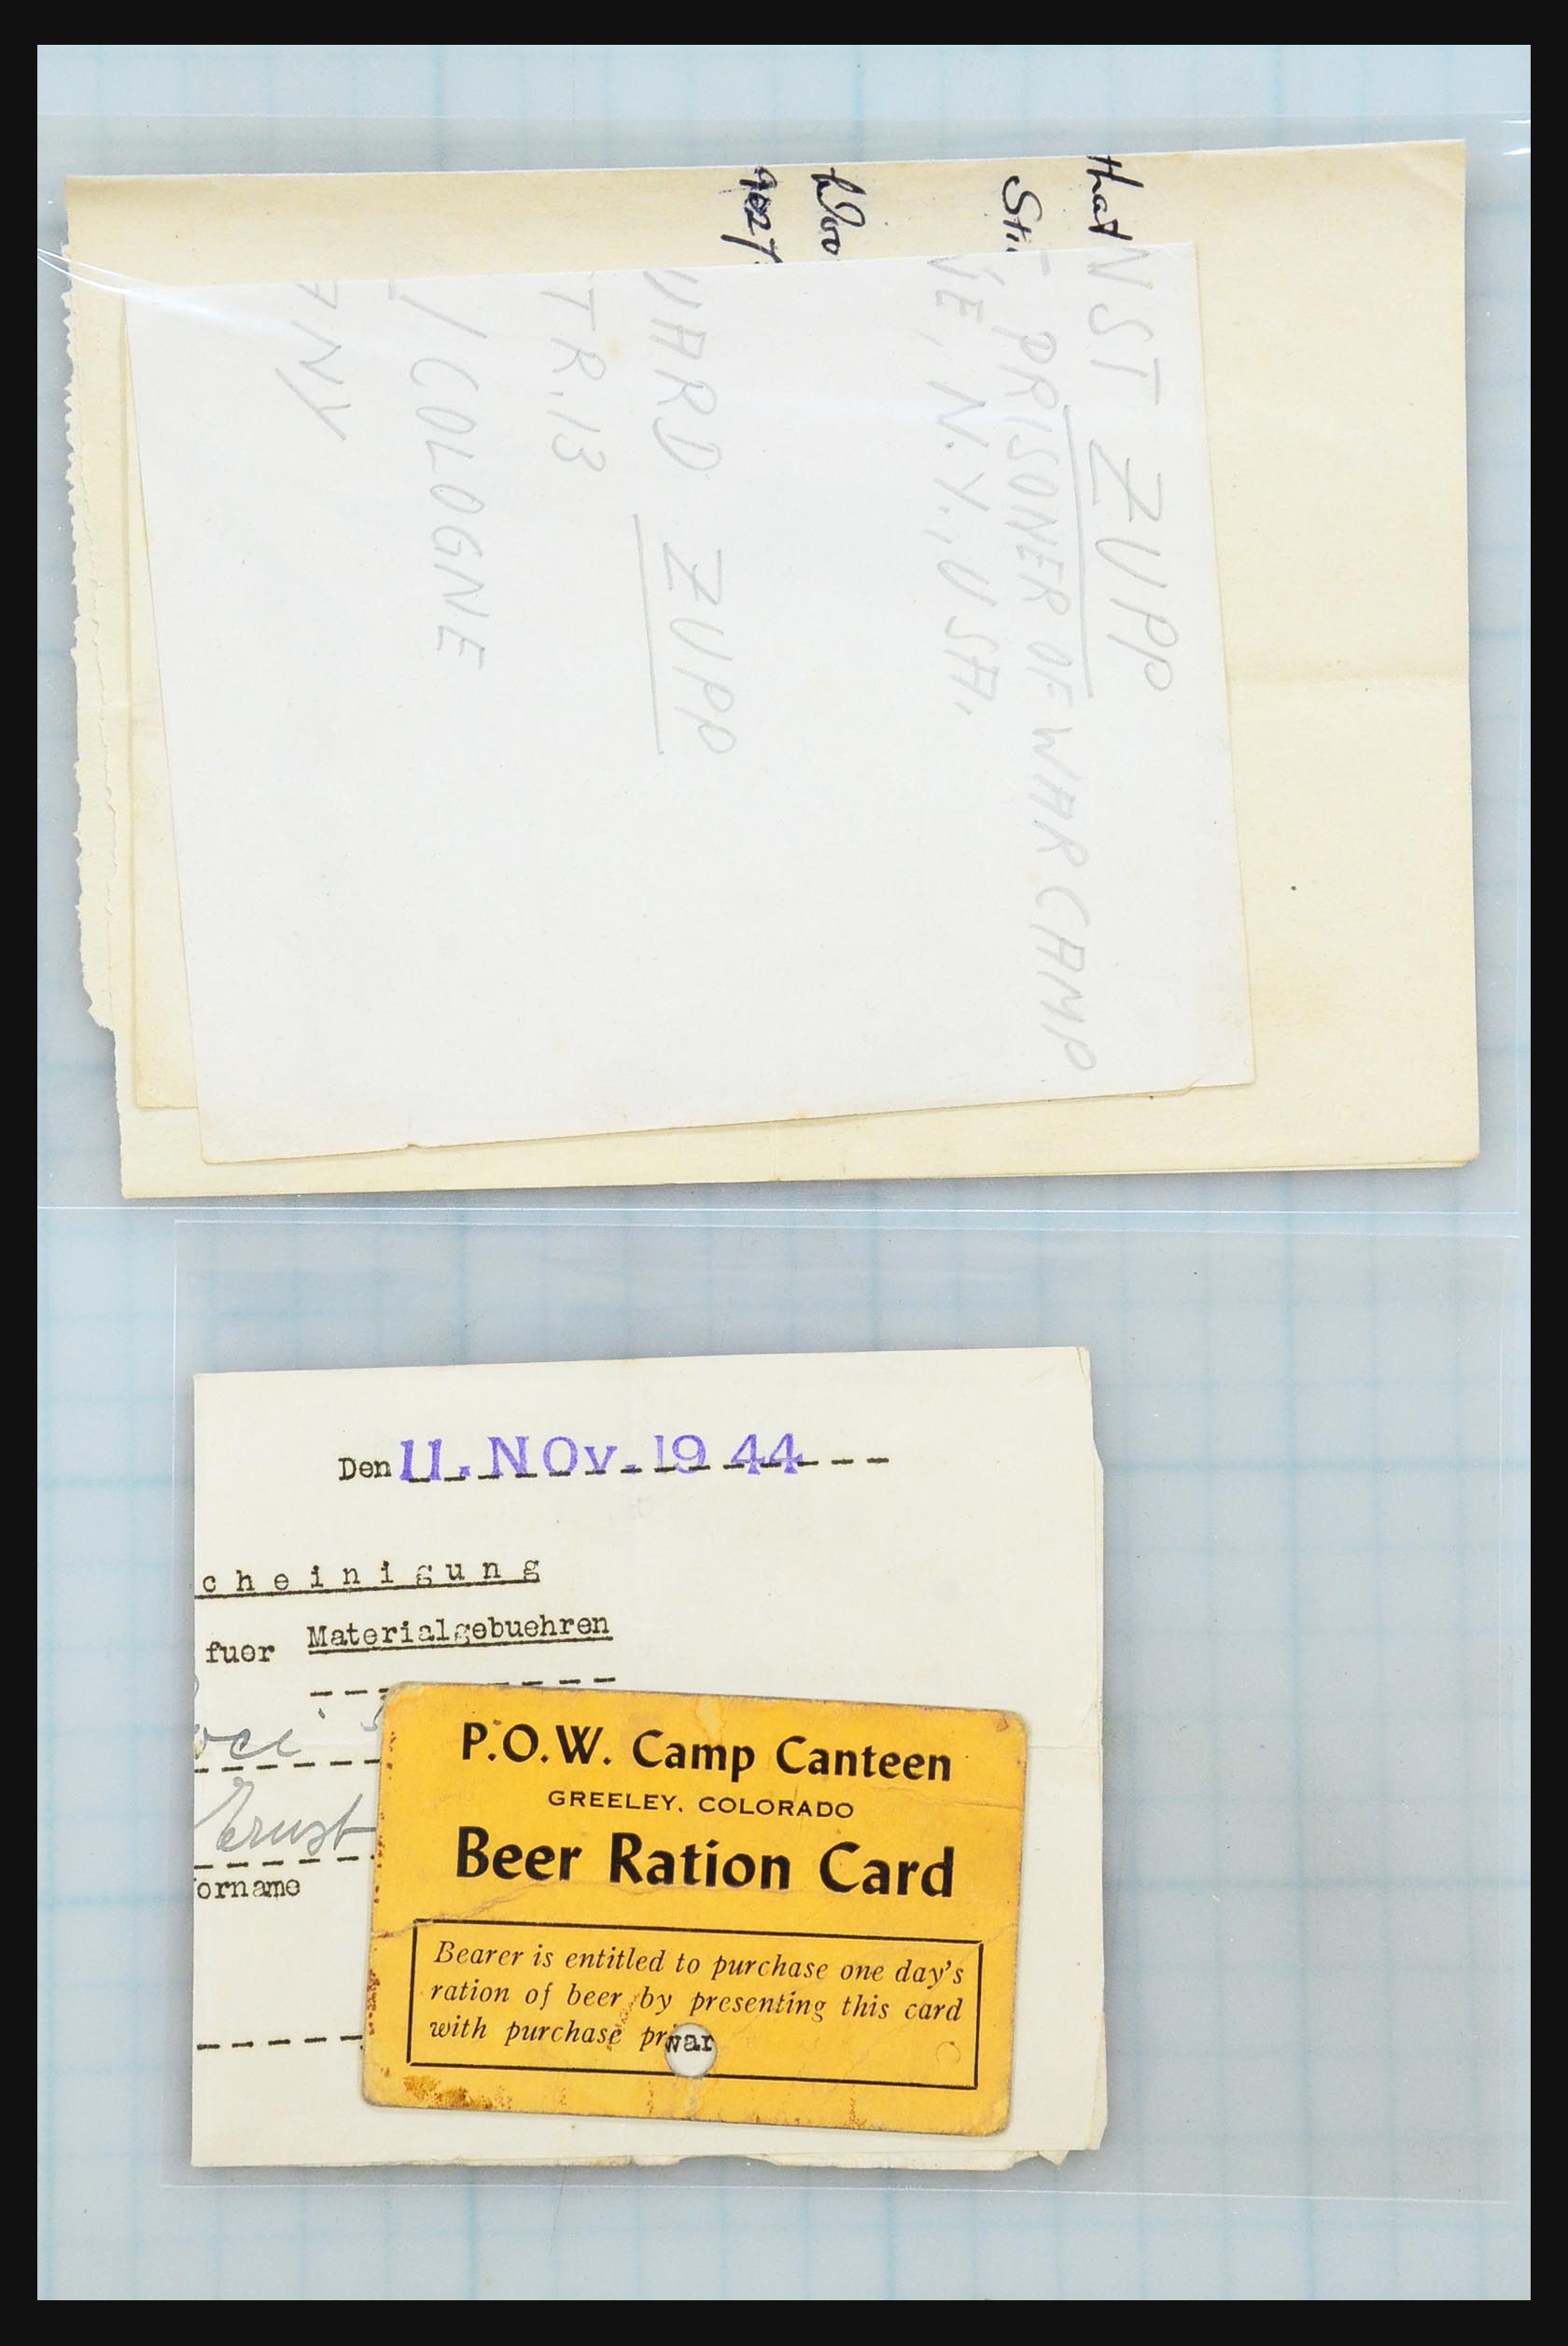 that
Sti
Woo
NST ZUPP
PRISONER OF WAR CAMP
NE, N.Y., USA.
HARD ZUPP
TR.13
/COLOGNE
ANY
Den 11. NOV. 1944
cheinigung
fuer Materialgebuehren
Ernst
orname
P.O.W. Camp Canteen
GREELEY, COLORADO
Beer Ration Card
Bearer is entitled to purchase one day's
ration of beer by presenting this card
with purchase pri
war